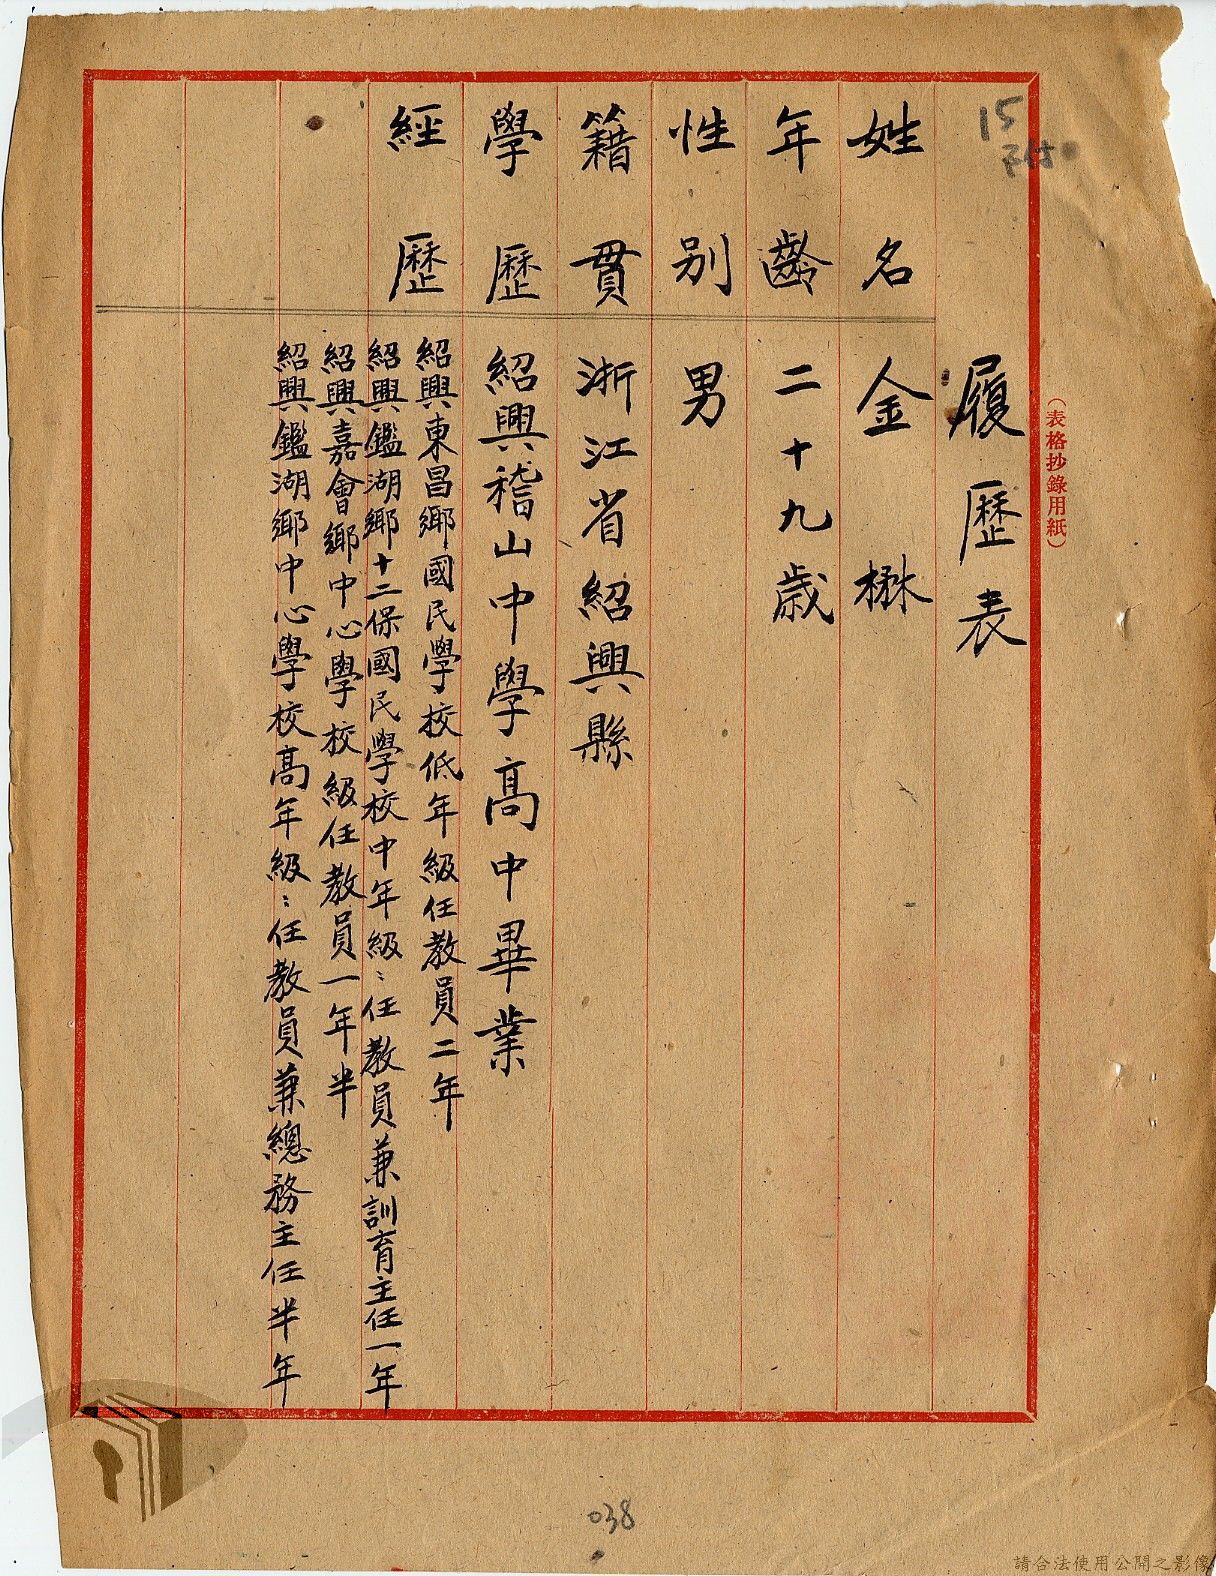 15
附
(表格抄錄用紙)
履歷表
姓名 金楙
年齡 二十九歲
性別 男
籍貫 浙江省紹興縣
學歷 紹興稽山中學高中畢業
經歷 紹興東昌鄉國民學校低年級任教員二年
紹興鑑湖鄉十二保國民學校中年級:任教員兼訓育主任一年
紹興嘉會鄉中心學校級任教員一年半
紹興鑑湖鄉中心學校高年級:任教員兼總務主任半年
038
請合法使用公開之影像